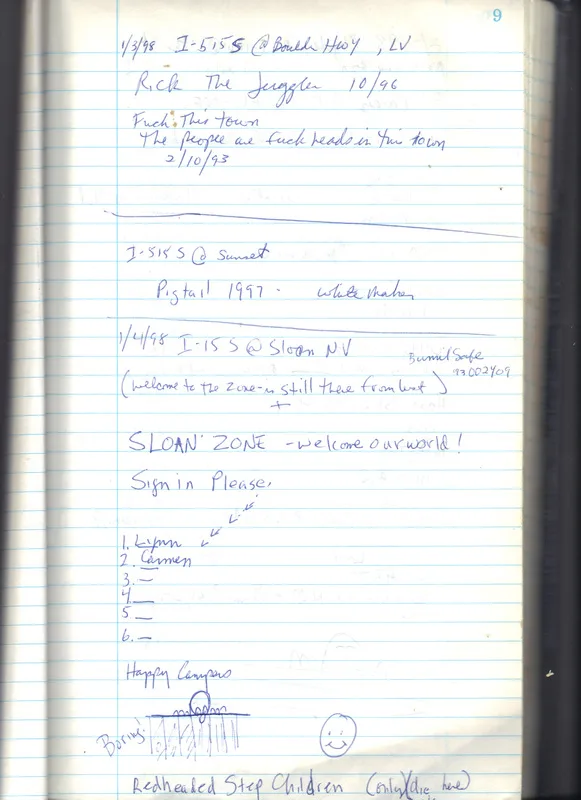 9
1/3/98 I-515 S @ Boulder Hwy, LV
Rick The Juggler 10/96
Fuck This town
The people are fuck heads in this town
2/10/93
I-515 S @ Sunset
Pigtail 1997 - white marker
1/4/98 I-15 S @ Sloan NV
(Welcome to the Zone - is still there from last)
+
SLOAN ZONE - welcome our world!
Sign in Please,
1. Lynn
2. Carmen
3. —
4 —
5 —
6. —
Happy Campers
Boring!
Redheaded Step Children (only) (die here)